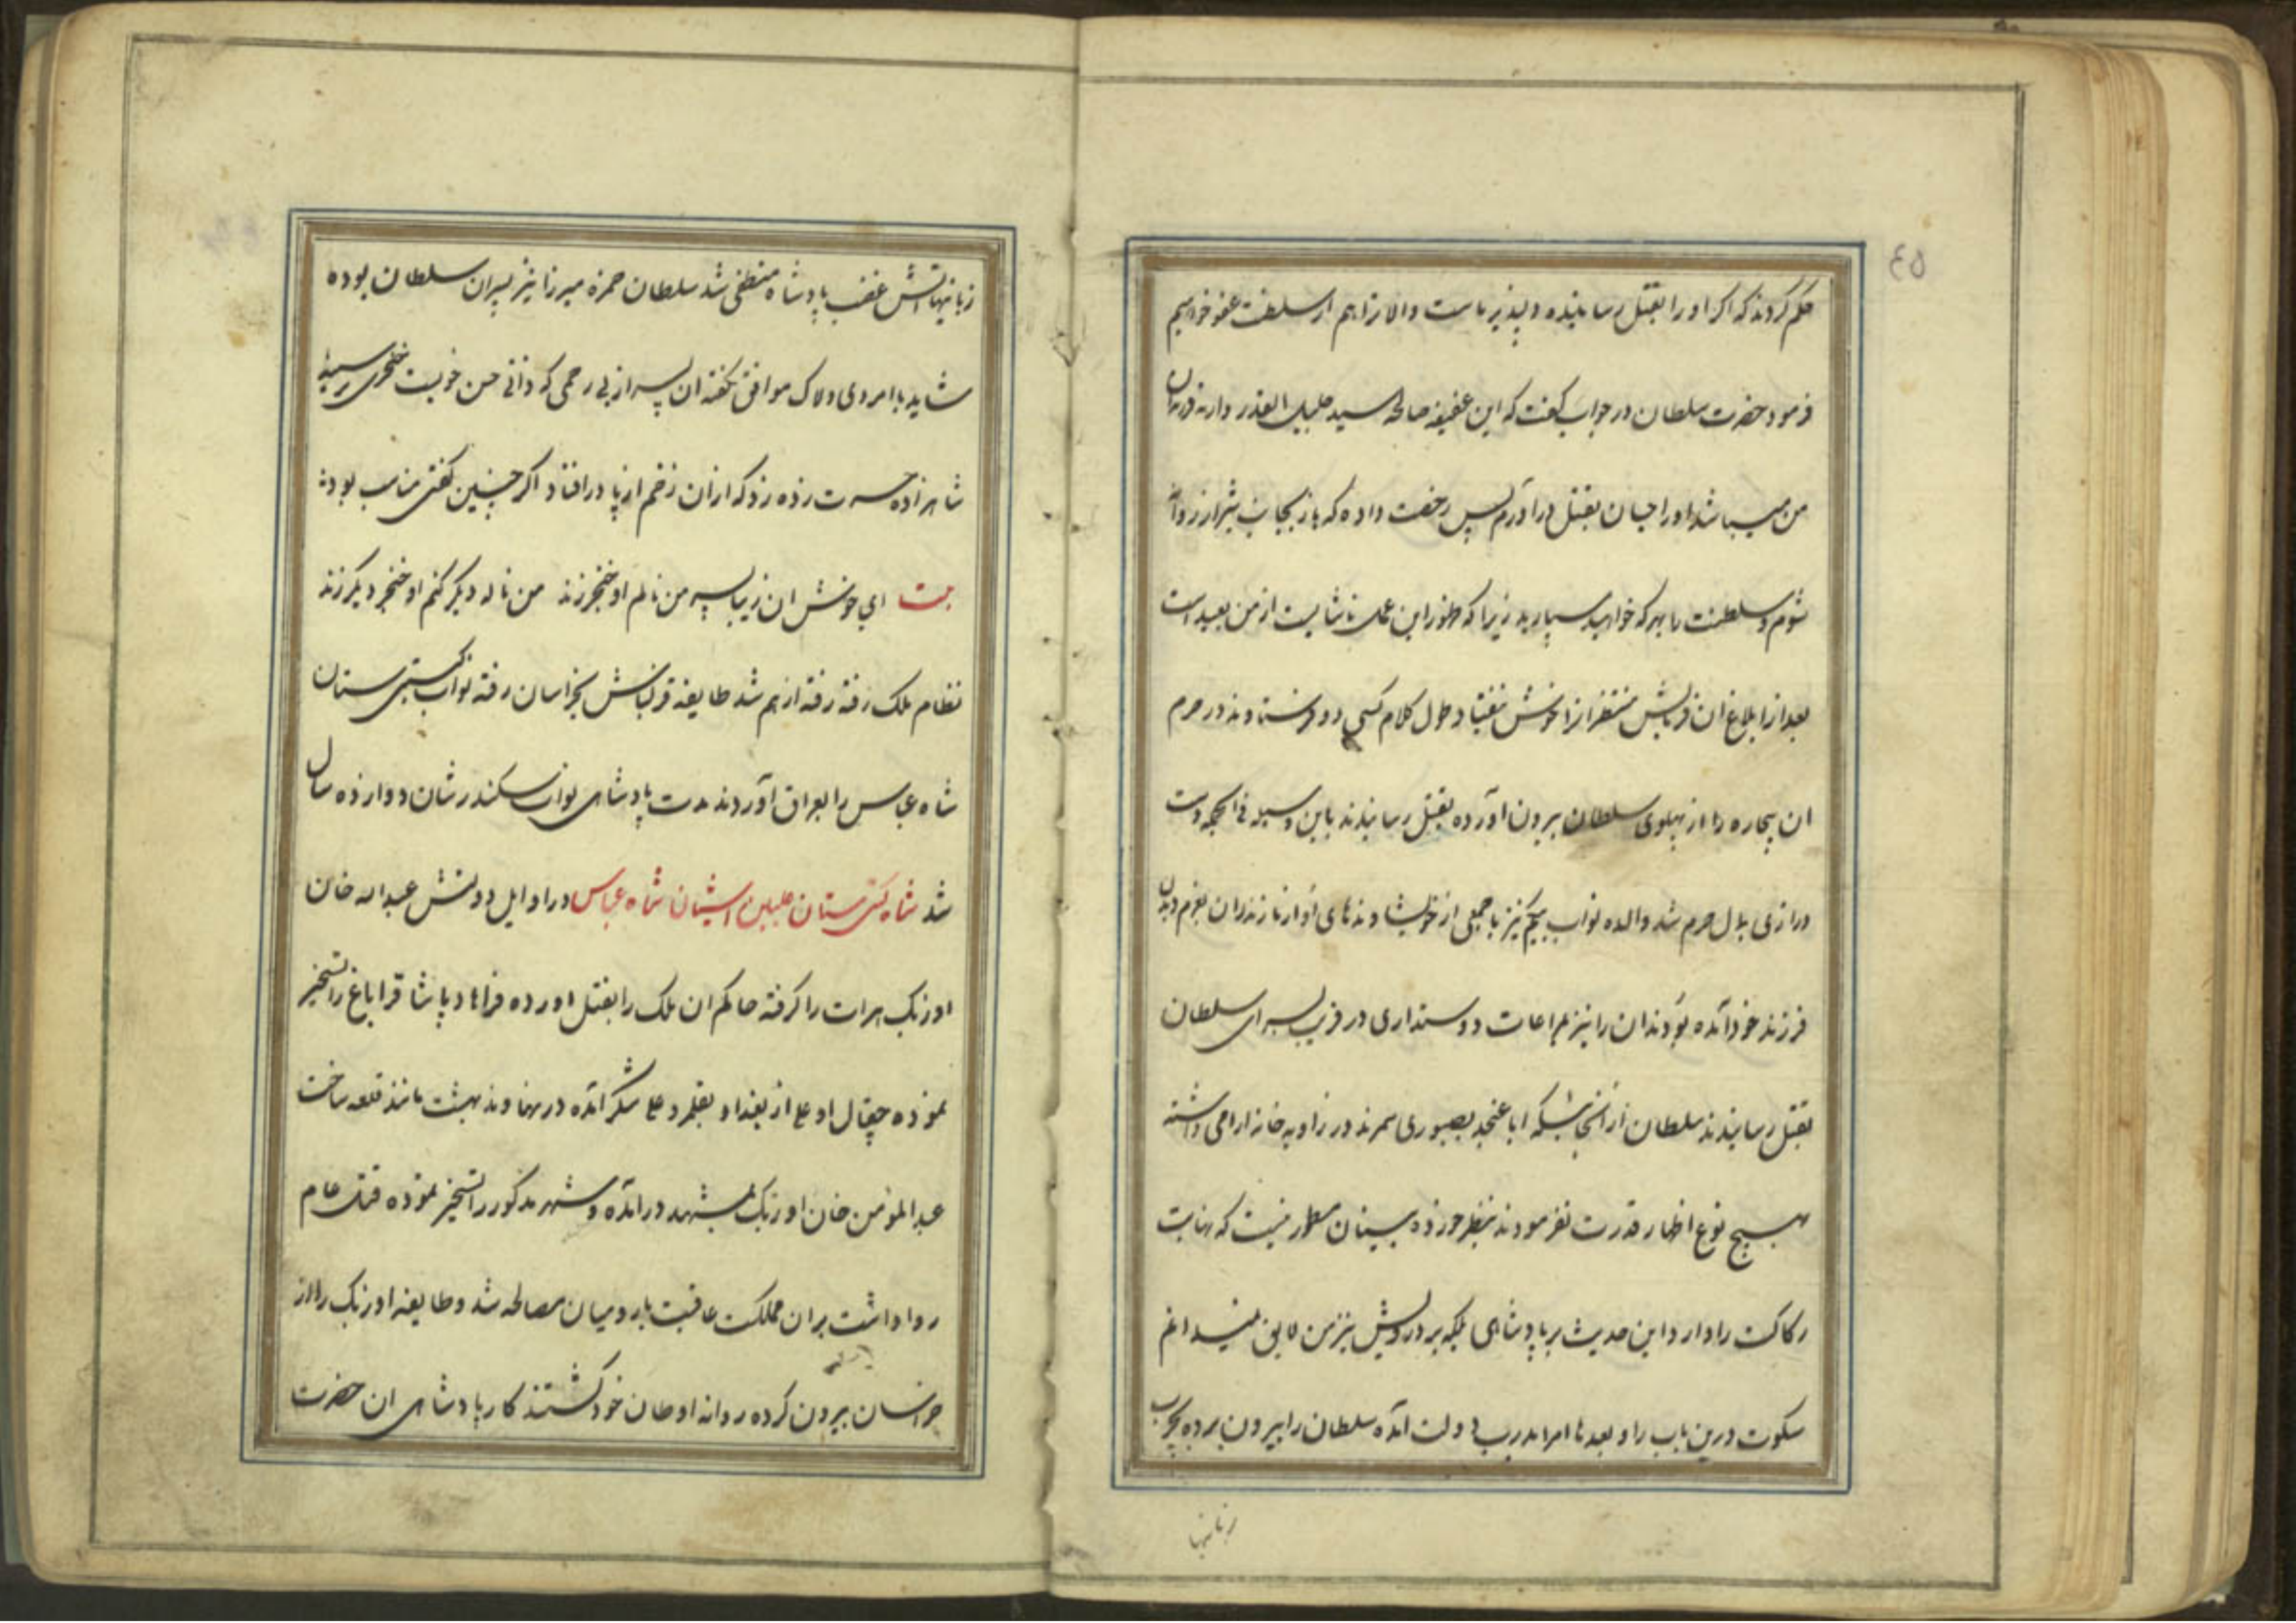 ٤٥
حکم کردند که اکر او را بقتل رسانیده دلپذیر ماست والا ترا هم از سلطنت عفو خواهیم
فرمود حضرت سلطان در جواب کفت که این عفیفه صالحه سید جلیل القدر
من میباشد او را چسان بقتل درآورم پس رخصت داده که باز بجانب شیراز
شوم و سلطنت را بهر که خواهید سپارید زیرا که ظهور این عمل ناشایست از من بعید است
بعد از ابلاغ ان فرمایش طول کلام کسی فرستادند در حرم
ان بیچاره را از پهلوی سلطان بیرون اورده بقتل رسانیدند باین وسیله فی الجمله دست
درازی بدان حرم شد والده نواب بیکم نیز با جمعی از خویشاوندهای او از مازندران بعزم دیدن
فرزند خود آمده بودند ان را نیز بمراعات دوستداری در قرب سرای سلطان
بقتل رسانیدند سلطان از انجا بصبوری در زاویه خانه ارامی داشته
هیچ نوع اظهار قدرت نفرمودند بنظر خورده بینان نیست که نهایت
رکاکت را دارد این حدیث بر پادشاهی بلکه بر درویش نیز من لایق نمیدانم
سکوت درین باب را و بعد تا امرا بدرب دولت آمده سلطان را بیرون برده
زبانیها
زبانیها آتش غضب پادشاه منطفی شد سلطان حمزه میرزا نیز پسران سلطان بوده
شاید با مردی دلاک موافق نکفته ان پسر از بی رحمی که دانی حسن خوبست خنجری
شاهزاده حسرت زده زد که ازان زخم از پا درافتاد اکر چنین کفتی مناسب بود
بیت ای خوش ان زیبا پسر من نالم او خنجر زند من ناله دیکر کنم او خنجر دیکر زند
نظام ملک رفته رفته از هم شد طایفه قزلباش بخراسان رفته نواب کیتی ستان
شاه عباس را بعراق آوردند مدت پادشاهی نواب سکندر شان دوازده سال
شد شاه کیتی ستان علیین اشیان شاه عباس در اوایل دولتش عبدالله خان
اوزبک هرات را کرفته حاکم ان ملک را بقتل اورده فرهاد پاشا قراباغ را تسخیر
نموده چقال اوغلی از بغداد آمده در نهاوند بهشت مانند قلعه ساخت
عبدالمؤمن خان اوزبک بمشهد درآمده و شهر مذکور را تسخیر نموده قتل عام
روا داشت بران مملکت عاقبت بار و میان مصالحه شد و طایفه اوزبک را از
خراسان بیرون کرده روانه اوطان خود کشتند کار پادشاهی ان حضرت